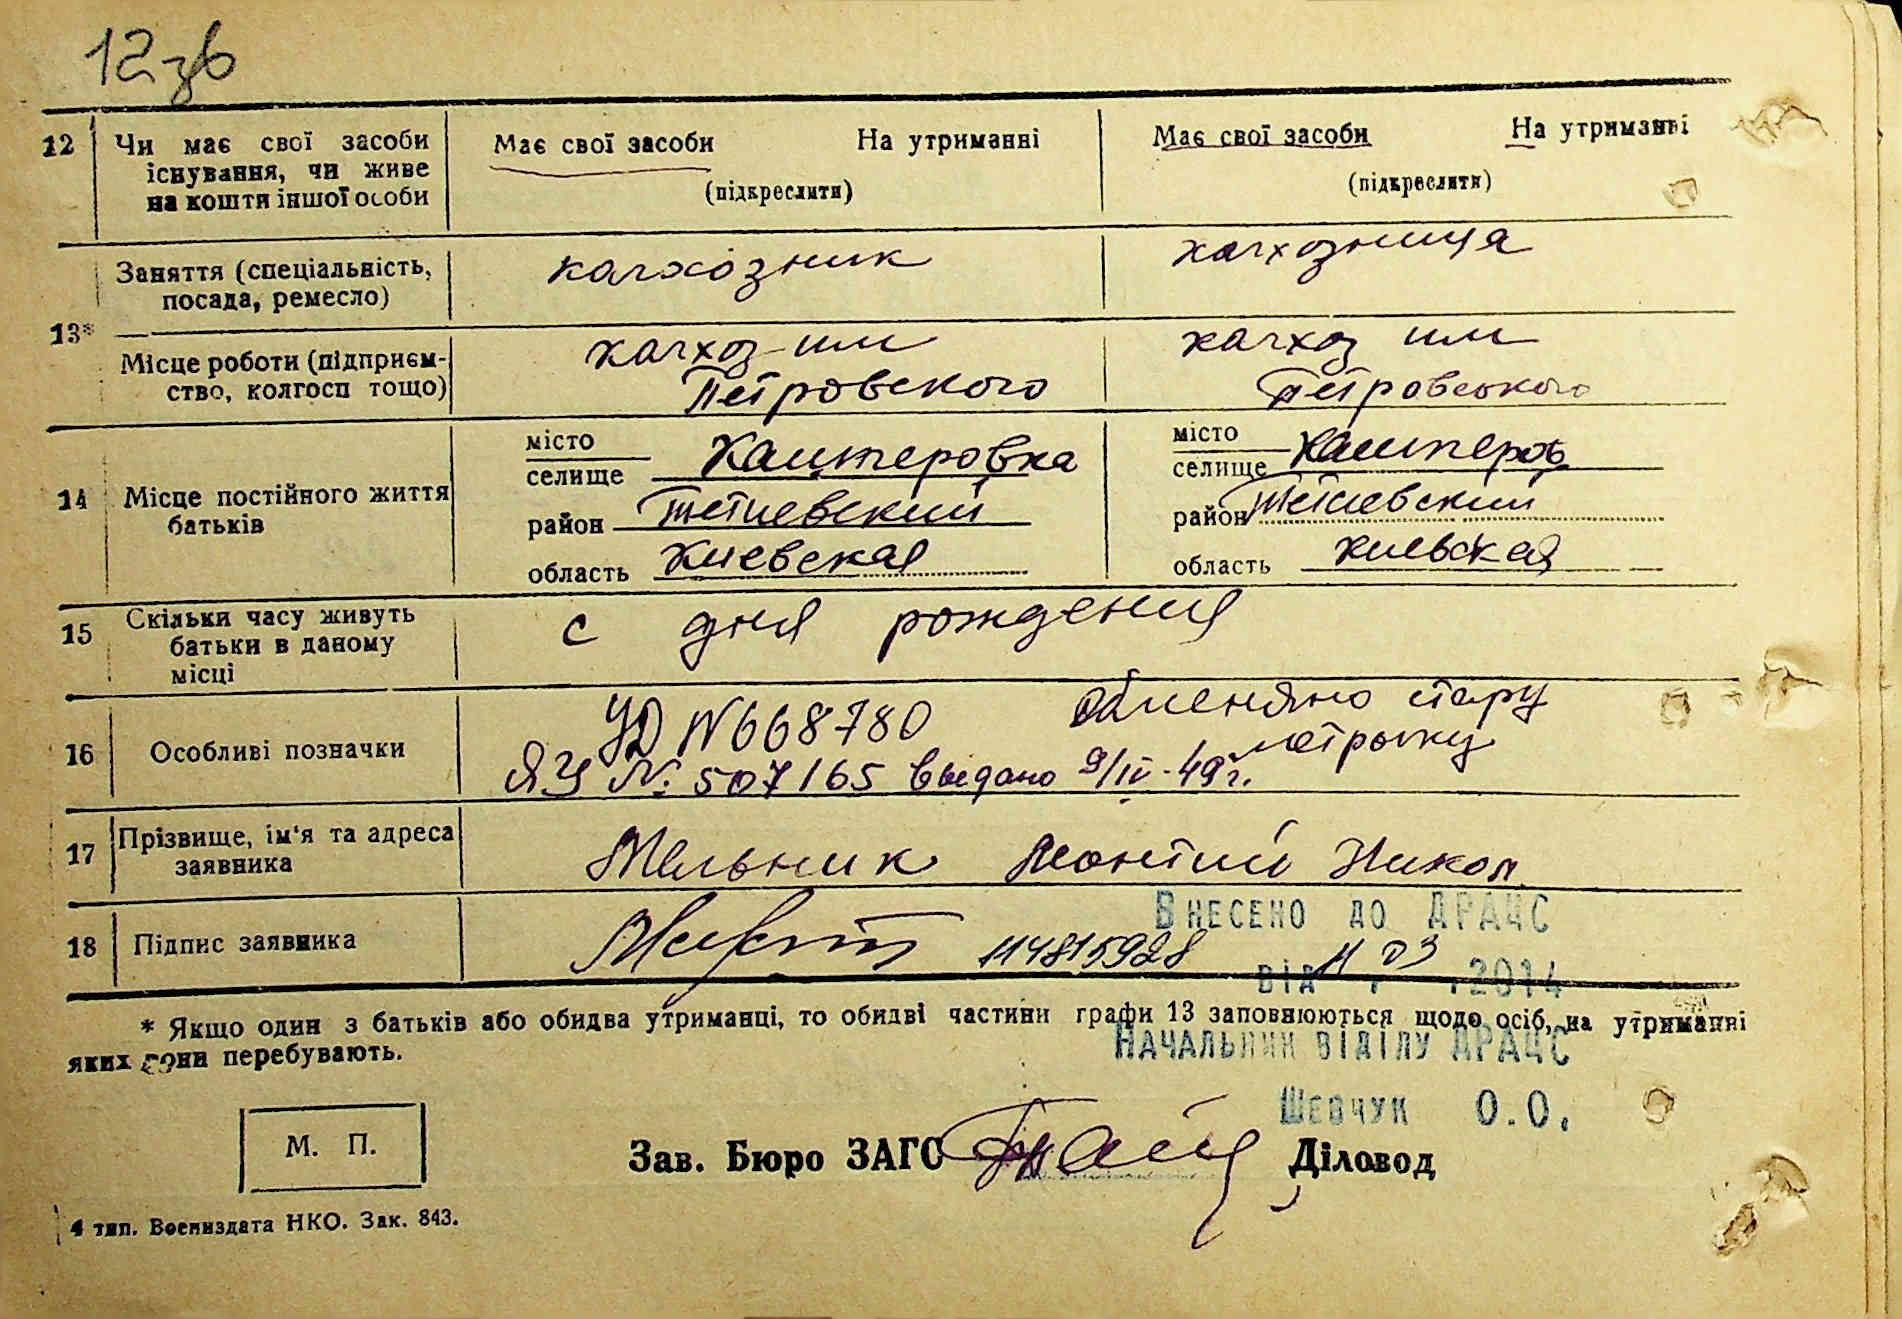 12зв
12 Чи має свої засоби існування, чи живе на кошти іншої особи
Має свої засоби На утриманні
(підкреслити)
Має свої засоби На утриманні
(підкреслити)
13*
Заняття (спеціальність, посада, ремесло)
колхозник
колхозница
Місце роботи (підприєм-
ство, колгосп тощо)
колхоз им
Петровского
колхоз им
Петровського
14 Місце постійного життя батьків
місто
селище Кашперовка
район Тетиевский
область Киевская
місто
селище Кашперов
район Тетиевский
область Киевская
15 Скільки часу живуть батьки в даному місці
с дня рождения
16 Особливі позначки
УД №668780 Обменяно стару
метрыку
ЯЦ №: 507165 выдано 9/IV-49 г.
17 Прізвище, ім'я та адреса заявника
Мельник Леонтий Никол
18 Підпис заявника
114815928
Внесено до ДРАЦС
від 11 03 .2014
* Якщо один з батьків або обидва утриманці, то обидві частини графи 13 заповнюються щодо осіб, на утриманні
яких вони перебувають.
Начальник відділу ДРАЦС
Шевчук О.О.
М. П.
Зав. Бюро ЗАГС Діловод
4 тип. Воениздата НКО. Зак. 843.